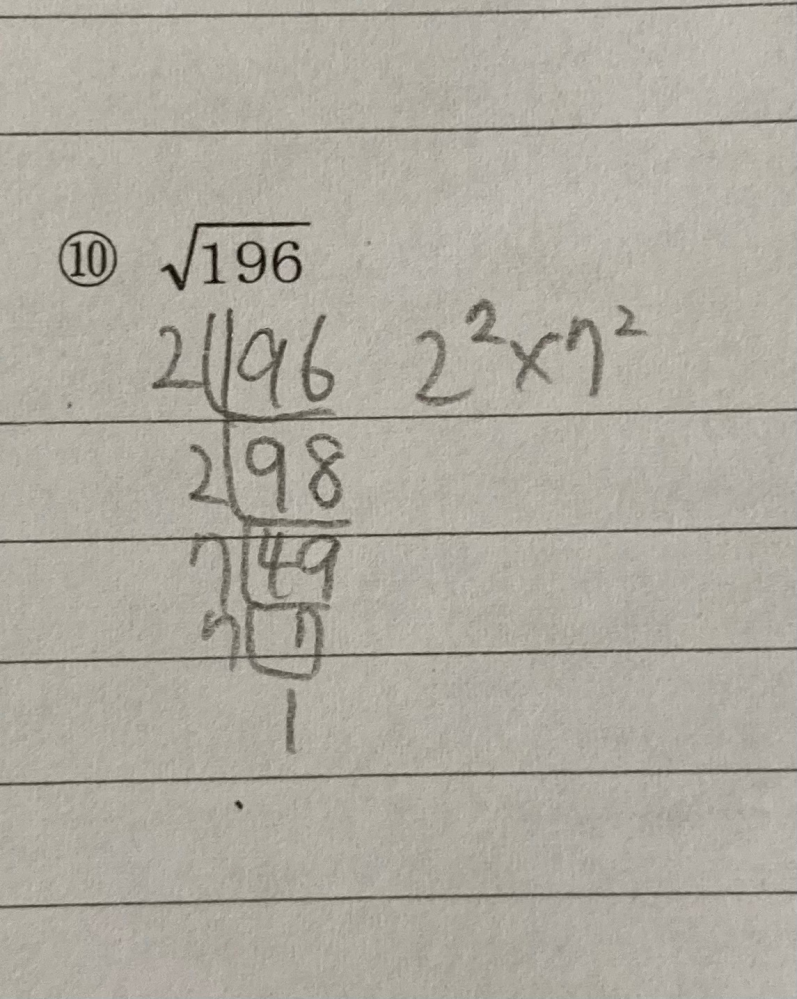 ⑩ √196
2 196 2²×7²
2 98
7 49
7 7
1